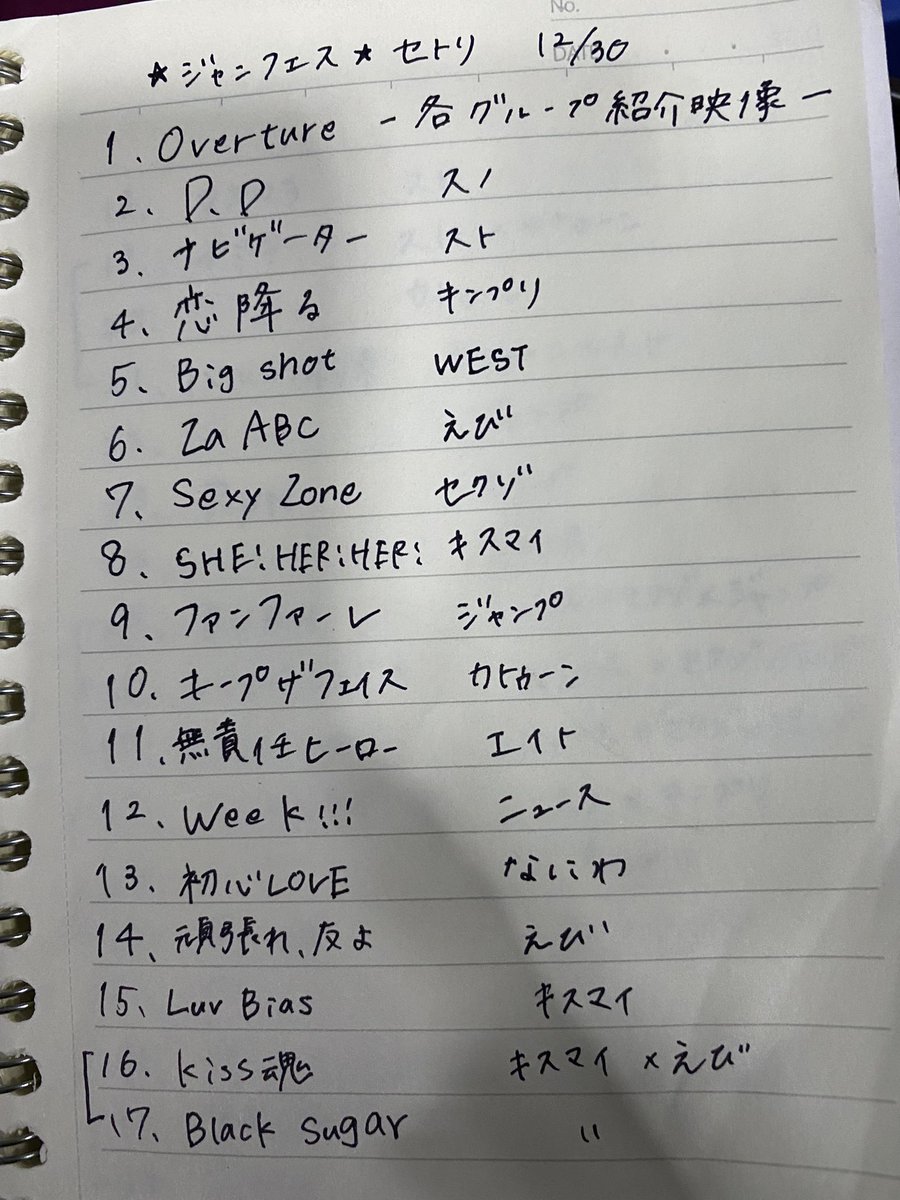 No.
★ジャンフェス★ セトリ 12/30
DATE
1. Overture - 各グループ紹介映像 -
2. D.D スノ
3. ナビゲーター スト
4. 恋降る キンプリ
5. Big shot WEST
6. Za ABC えび
7. Sexy Zone セクゾ
8. SHE!HER!HER! キスマイ
9. ファンファーレ ジャンプ
10. キープザフェイス カトゥーン
11. 無責任ヒーロー エイト
12. Week!!! ニュース
13. 初心LOVE なにわ
14. 頑張れ、友よ えび
15. Luv Bias キスマイ
16. Kiss魂 キスマイ×えび
17. Black Sugar 〃